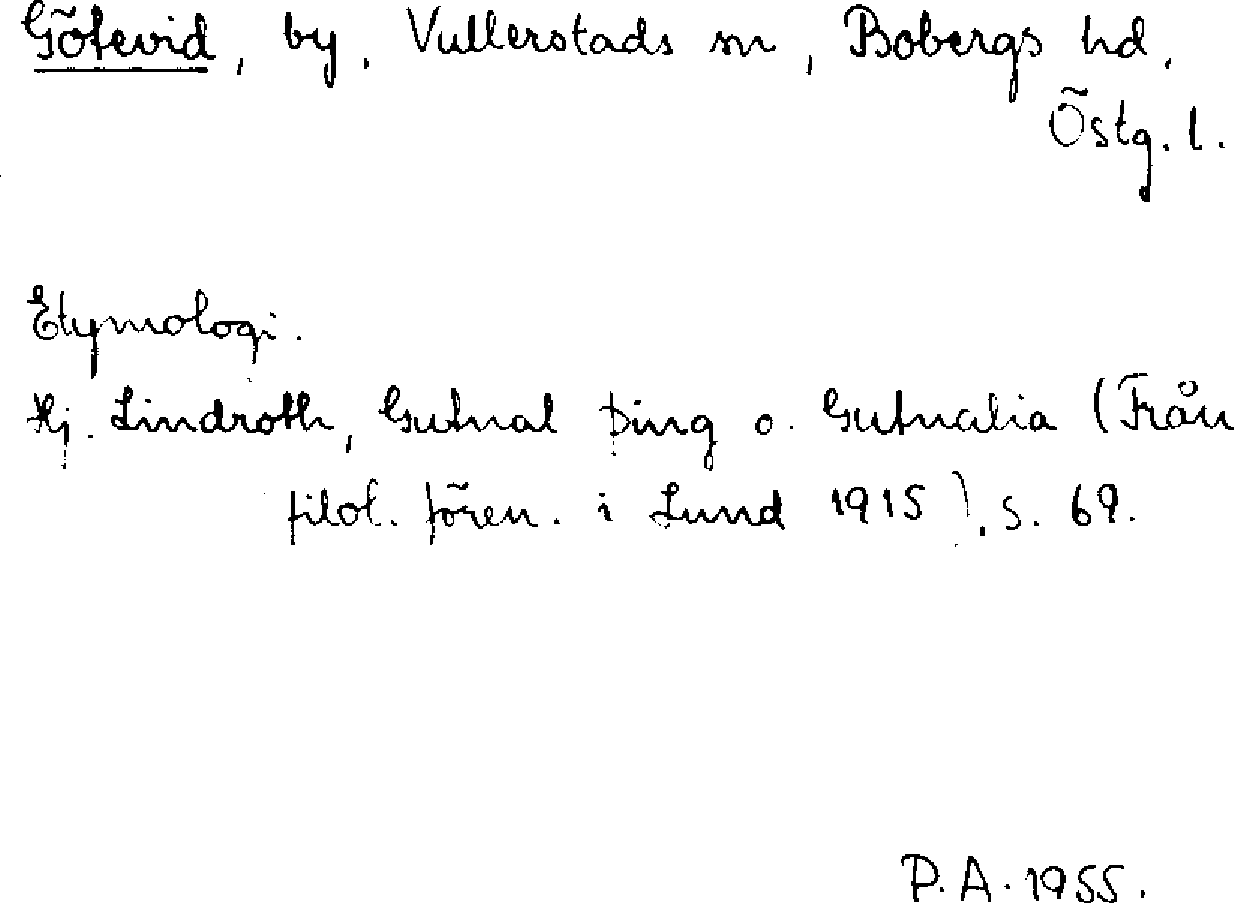 Götevid, by, Vullerstads sn, Bobergs hd.
Östg. l.
Etymologi.
Hj. Lindroth, Gutnal þing o. Gutnalia (Från
filol. fören. i Lund 1915), s. 69.
P. A. 1955.